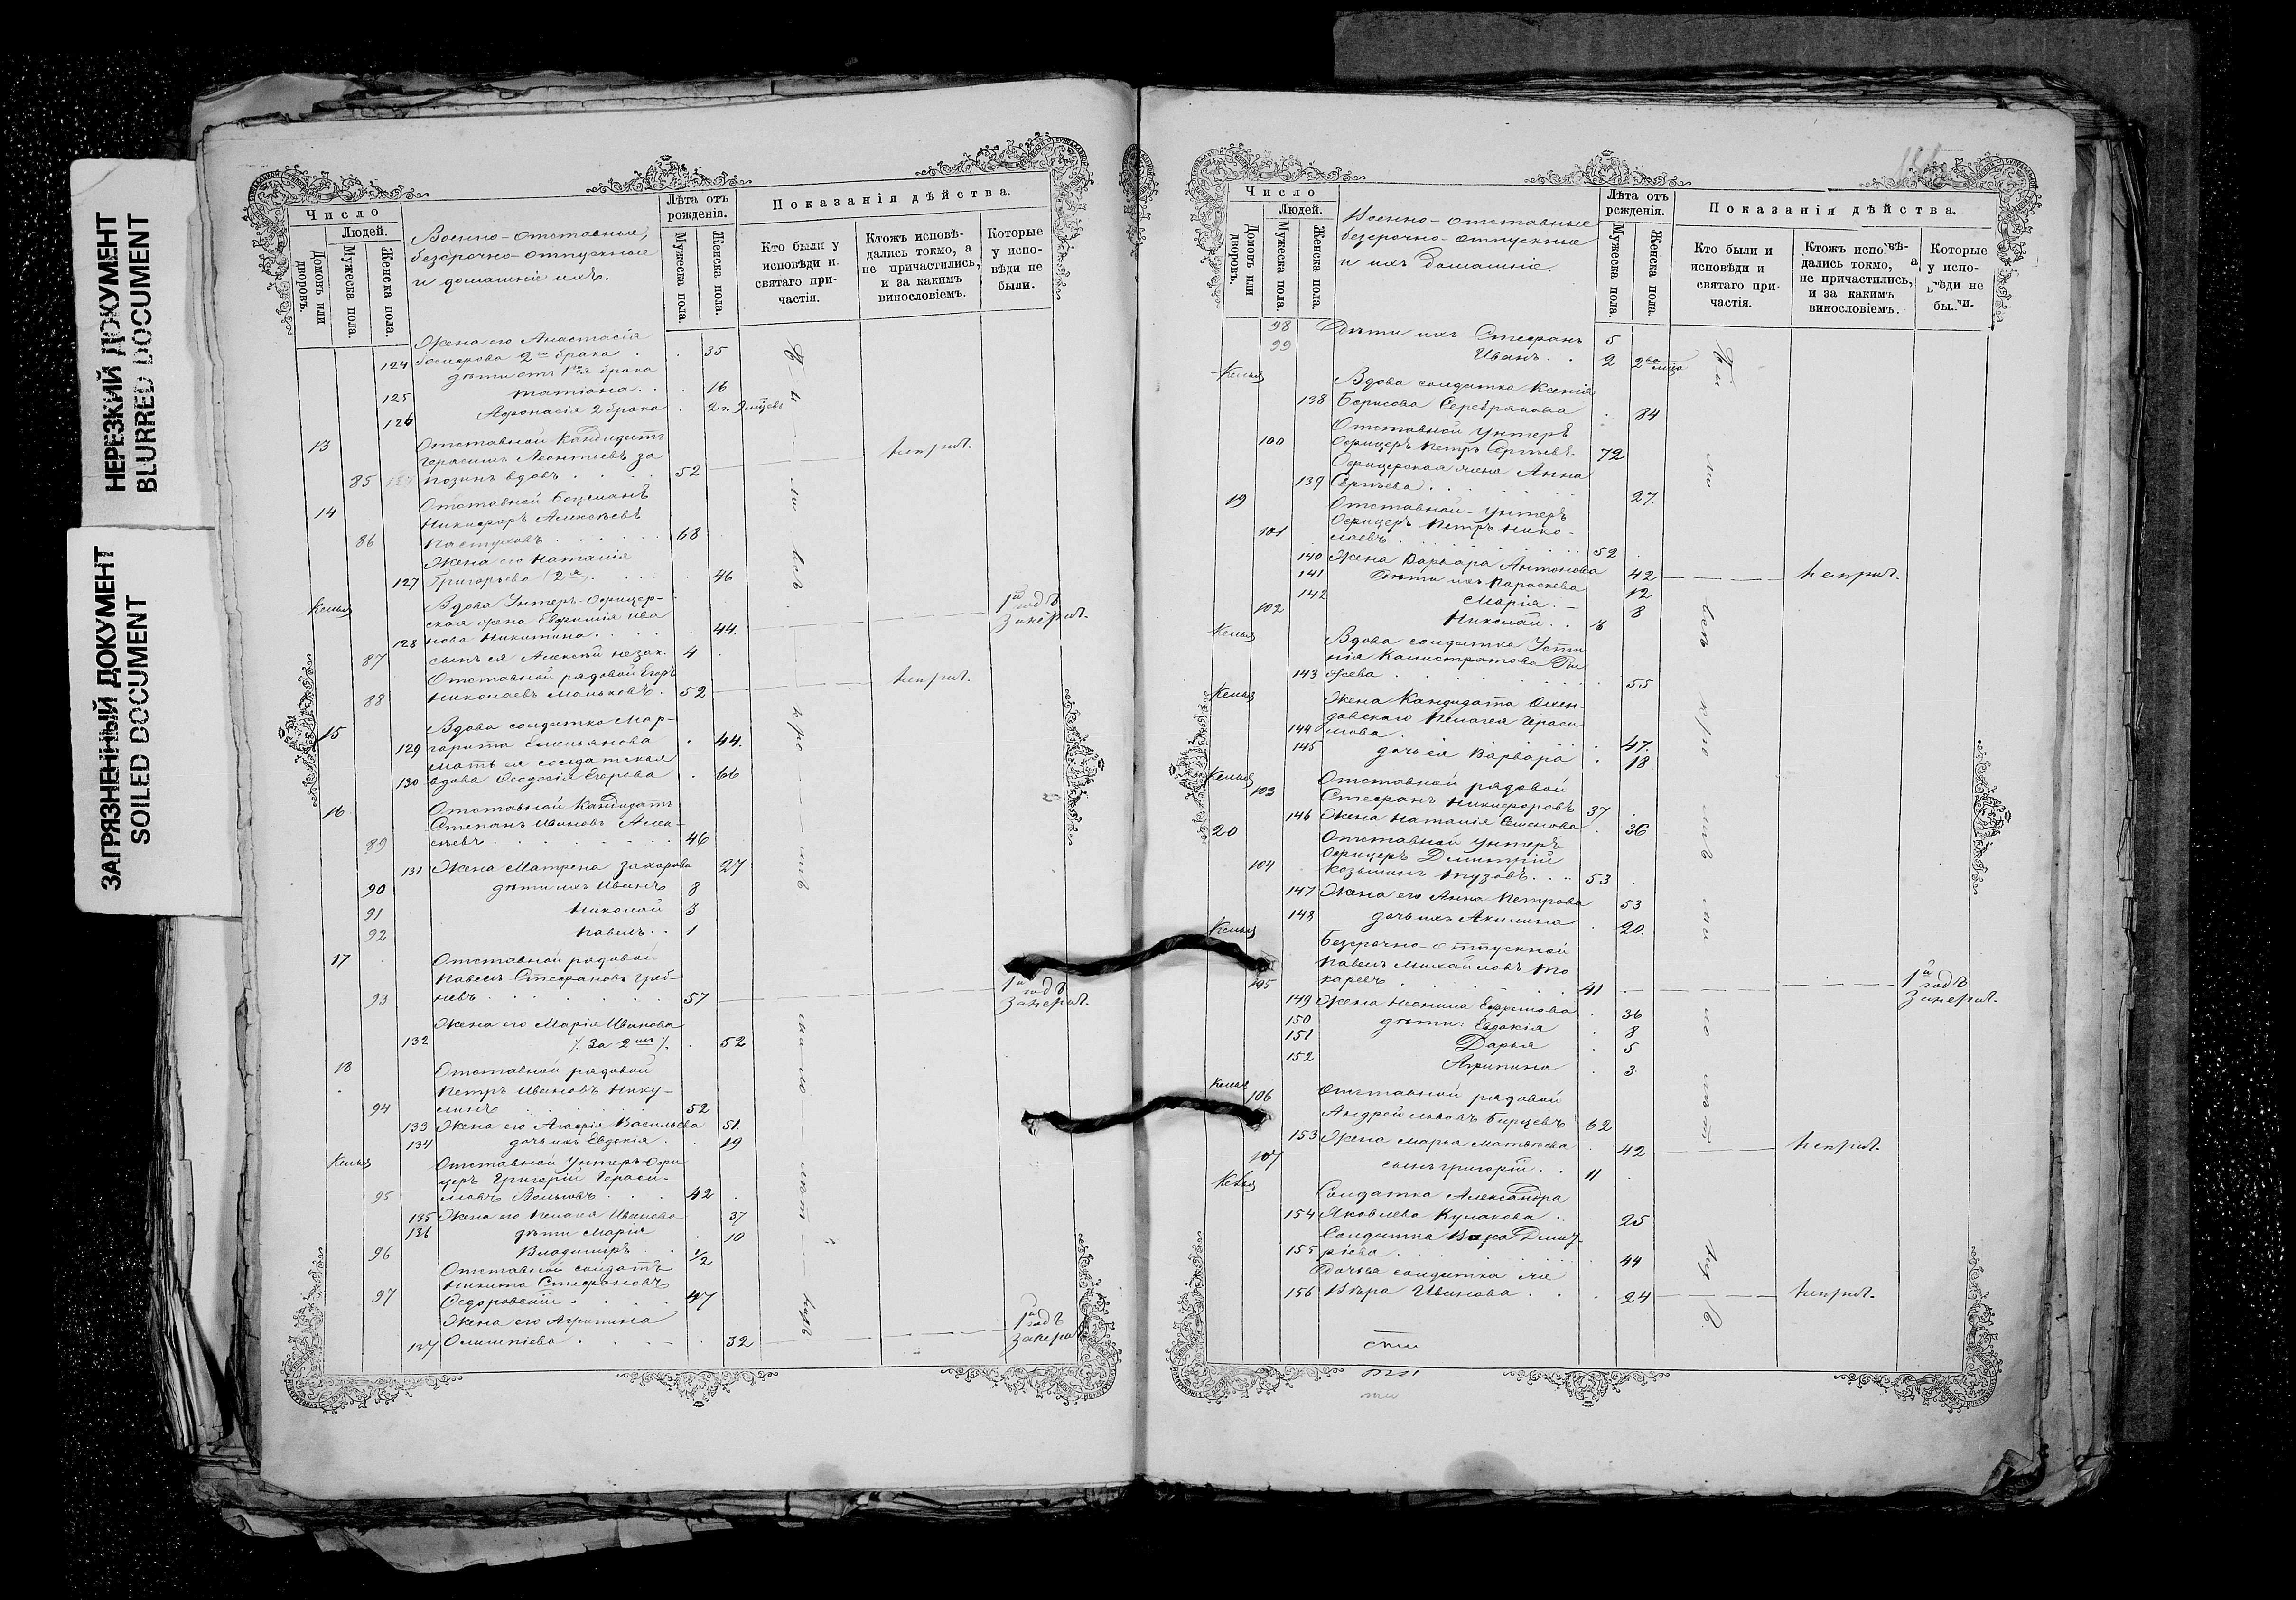 НЕРЕЗКИЙ ДОКУМЕНТ
BLURRED DOCUMENT
ЗАГРЯЗНЕННЫЙ ДОКУМЕНТ
SOILED DOCUMENT
Число
Людей.
Домовъ или дворовъ.
Мужеска пола.
Женска пола.
Военно-отставные,
безсрочно-отпускные
и домашніе ихъ.
Лѣта отъ рожденія.
Мужеска пола.
Женска пола.
Показанія дѣйства.
Кто были у исповѣди и святаго причастія.
Ктожъ исповѣдались токмо, а не причастились, и за какимъ винословіемъ.
Которые у исповѣди не были.
Жена его Анастасія
124 Іосифова 2го брака . 35
дѣти отъ 1го брака
125 Татіана . . 16
126 Афонасія 2 брака . 2
13 Отставной Кандидатъ
Герасимъ Леонтьевъ
85 вдовъ . . 52 неприч.
14 Отставной Боцманъ
Никифоръ Алексѣевъ
86 Пастуховъ . . . 68
Жена его Наталія
127 Григорьева (2я) . . . 46
Келья Вдова Унтеръ-Офицер-
ская жена Евфимія Ива
128 нова Никитина . . . 44. 1й годъ
87 сынъ ея Алексѣй незак. 4
Отставной рядовой Егоръ
88 Николаевъ Маньковъ . 52 неприч.
15 Вдова солдатка Мар-
129 гарита Емельянова . 44.
Мать ея солдатская
130 вдова Ѳеодосія Егорова . 66
16 Отставной Кандидатъ
Степанъ Ивановъ Алек-
89 сѣевъ . . . 46
131 Жена Матрена Захарова 27
90 дѣти ихъ Иванъ 8
91 Николай 3
92 Павелъ . . 1
17 Отставной рядовой
Павелъ Стефановъ Греб-
93 невъ . . . 57 1й годъ
Жена его Марія Иванова
132 /. За 2мъ /. . 52
18 Отставной рядовой
Петръ Ивановъ Нику-
94 линъ 52
133 Жена его Агафія Васильева 51.
134 дочь ихъ Евдокія . . 19
Келья Отставной Унтеръ-Офи
церъ Григорій Гераси-
95 мовъ . . . 42
135 Жена его Пелагея Иванова 37
136 дѣти Марія . 10
96 Владиміръ . . 1/2
Отставной солдатъ
Никита Стефановъ
97 Ѳедоровскій . . . 47
Жена его Агрипина
137 Олимпіева . . . 32 1й годъ
Число
Людей.
Домовъ или дворовъ.
Мужеска пола.
Женска пола.
Военно-отставные
безсрочно-отпускные
и ихъ домашніе.
Лѣта отъ рожденія.
Мужеска пола.
Женска пола.
Показанія дѣйства.
Кто были и исповѣди и святаго причастія.
Ктожъ исповѣдались токмо, а не причастились, и за какимъ винословіемъ.
Которые у исповѣди не были.
98 Дѣти ихъ Стефанъ 5
99 Иванъ . . 2
Келья Вдова солдатка Ксенія
138 Борисова Серебрякова . 84
Отставной Унтеръ
100 Офицеръ Петръ Сергѣевъ 72
Офицерская жена Анна
139 Сергѣева . . . 27.
19 Отставной-Унтеръ
Офицеръ Петръ Нико-
101 лаевъ . . . 52
140 Жена Варвара Антонова 42 неприч.
141 Дѣти ихъ Параскева 12
142 Марія . 8
102 Николай . .
Келья Вдова солдатка Усти
нія Калистратова
143 . . . 55
Келья Жена Кандидата
Пелагея Гераси
144 мова . . . 47.
145 дочь ея Варвара . 18
Келья Отставной рядовой
103 Стефанъ Никифоровъ 37
146 Жена Наталія Семенова . 36
20 Отставной Унтеръ
Офицеръ Димитрій
104 Козьминъ Тузовъ . . . 53
147 Жена его Анна Петрова 53
148 дочь ихъ Акилина . 20.
Келья Безсрочно-отпускной
Павелъ Михайловъ То
105 каревъ . . . 41 1й годъ
149 Жена Неонила Ефремова . 36
150 дѣти: Евдокія . 8
151 Дарья . 5
152 Агрипина . 3
Келья 106 Отставной рядовой
Андрей Львовъ 62
153 Жена Марья Матвѣева . 42 неприч.
107 сынъ Григорій . . 11
Келья Солдатка Александра
154 Яковлева Кулакова . . 25
Солдатка Вѣра Дмит-
155 ріева . . . 44
Дочья солдатка же
156 Вѣра Иванова . . . 24 неприч.